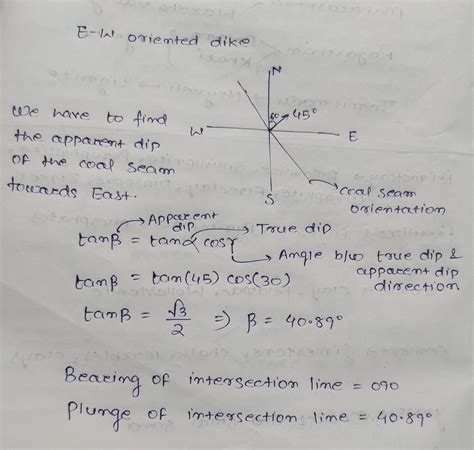 E-W oriented dike
N
60
45°
W
E
S
We have to find
the apparent dip
of the coal seam
towards East.
coal seam
orientation
Apparent
dip
True dip
tanβ = tanα cosγ
Angle b/w true dip &
apparent dip
direction
tanβ = tan(45) cos(30)
tanβ = √3/2 ⇒ β = 40.89°
Bearing of intersection line = 090
Plunge of intersection line = 40.89°